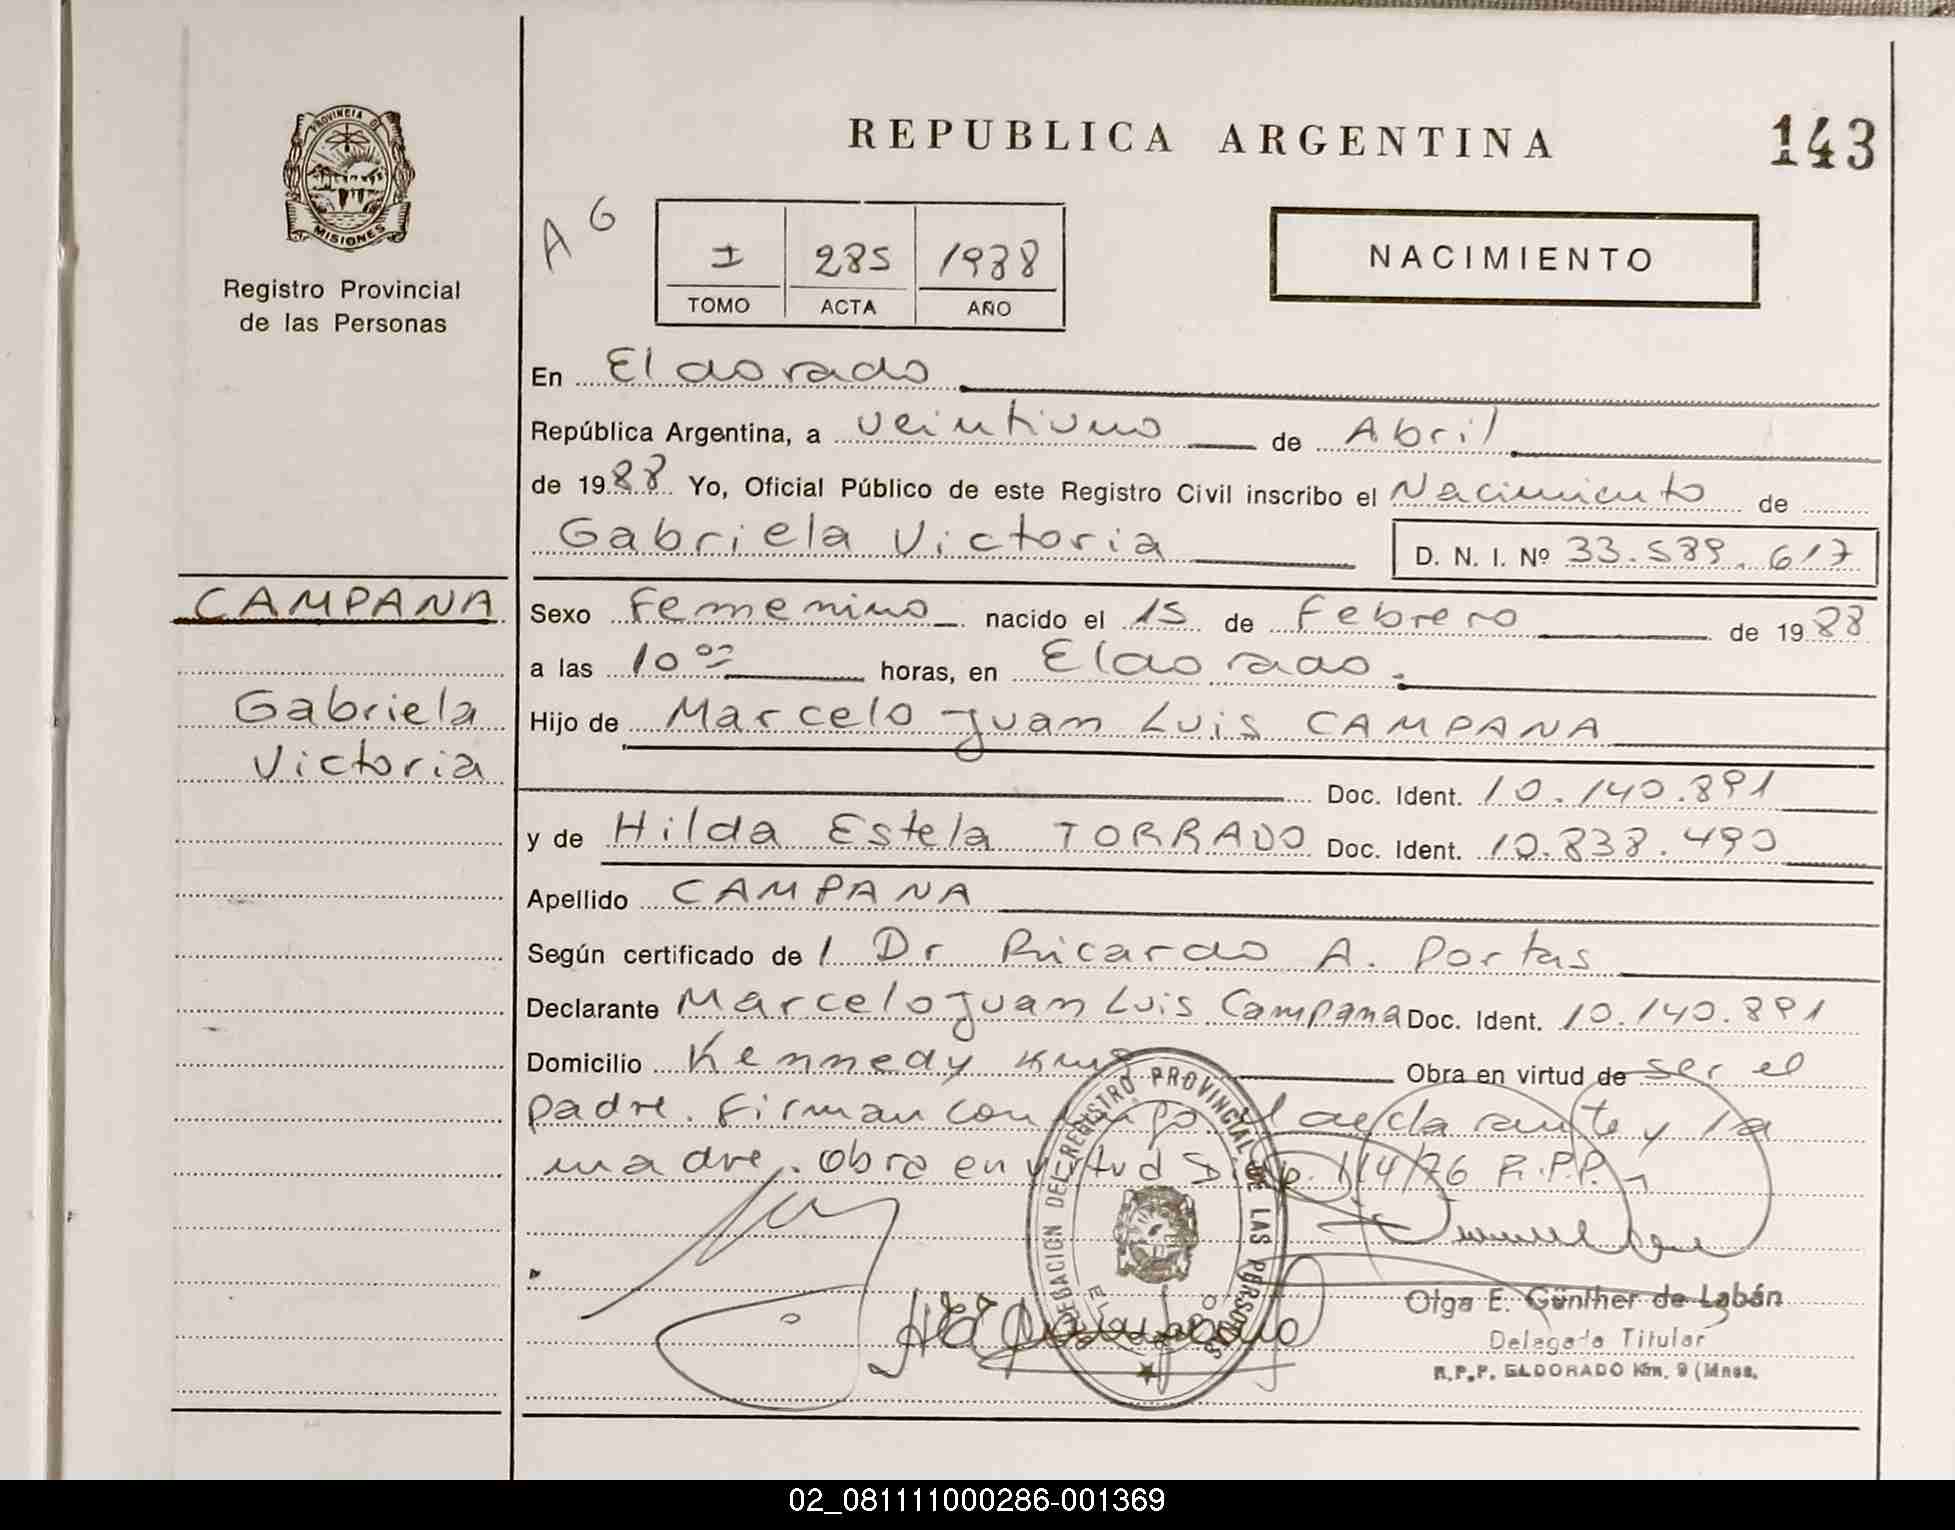 PROVINCIA DE
MISIONES
Registro Provincial
de las Personas
REPUBLICA ARGENTINA
143
A 6
I 285 1988
TOMO ACTA AÑO
NACIMIENTO
En Eldorado
República Argentina, a veintiuno de Abril
de 1988 Yo, Oficial Público de este Registro Civil inscribo el Nacimiento de
Gabriela Victoria D. N. I. Nº 33.589.617
CAMPANA
Gabriela
Victoria
Sexo Femenino nacido el 15 de Febrero de 1988
a las 10 00 horas, en Eldorado.
Hijo de Marcelo Juan Luis CAMPANA
Doc. Ident. 10.140.891
y de Hilda Estela TORRADO Doc. Ident. 10.838.490
Apellido CAMPANA
Según certificado de / Dr Ricardo A. Portas
Declarante Marcelo Juan Luis Campana Doc. Ident. 10.140.891
Domicilio Kennedy Km Obra en virtud de ser el
padre. Firman conmigo el declarante y la
madre. Obra en virtud Disp. 114/76 R.P.P.
DELEGACION DEL REGISTRO PROVINCIAL DE LAS PERSONAS
Olga E. Günther de Labán
Delegada Titular
R.P.P. ELDORADO Km. 9 (Mnes.
02_081111000286-001369